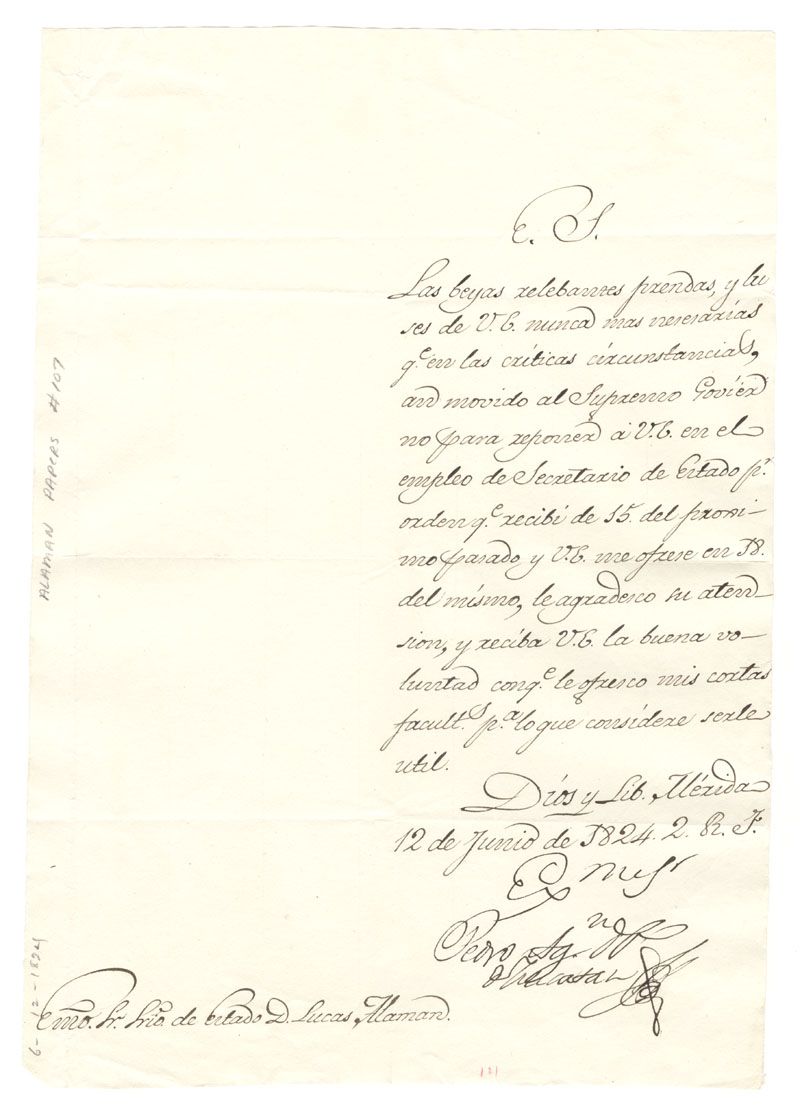 E. S.
Las beyas relebantes prendas, y lu
ses de V.E. nunca mas nesesarias
q.e en las críticas círcunstancias,
an movido al Supremo Goviér
no para reponer á V.E. en el
empleo de Secretario de Estado p.r
orden q.e recibí de 15. del proxi-
mo pasado y V.E. me ofrese en 18.
del mísmo, le agradesco su aten-
sion, y recíba V.E. la buena vo-
luntad con q.e le ofresco mis cortas
facult.s p.a lo que consídere serle
util.
Díos y Lib. Mérida
12 de Junio de 1824. 2. R. F.
Exmo Sr
Pedro
Emō. Sr. Srio. de Estado D. Lucas Alaman.
ALAMAN PAPERS #107
6-12-1824